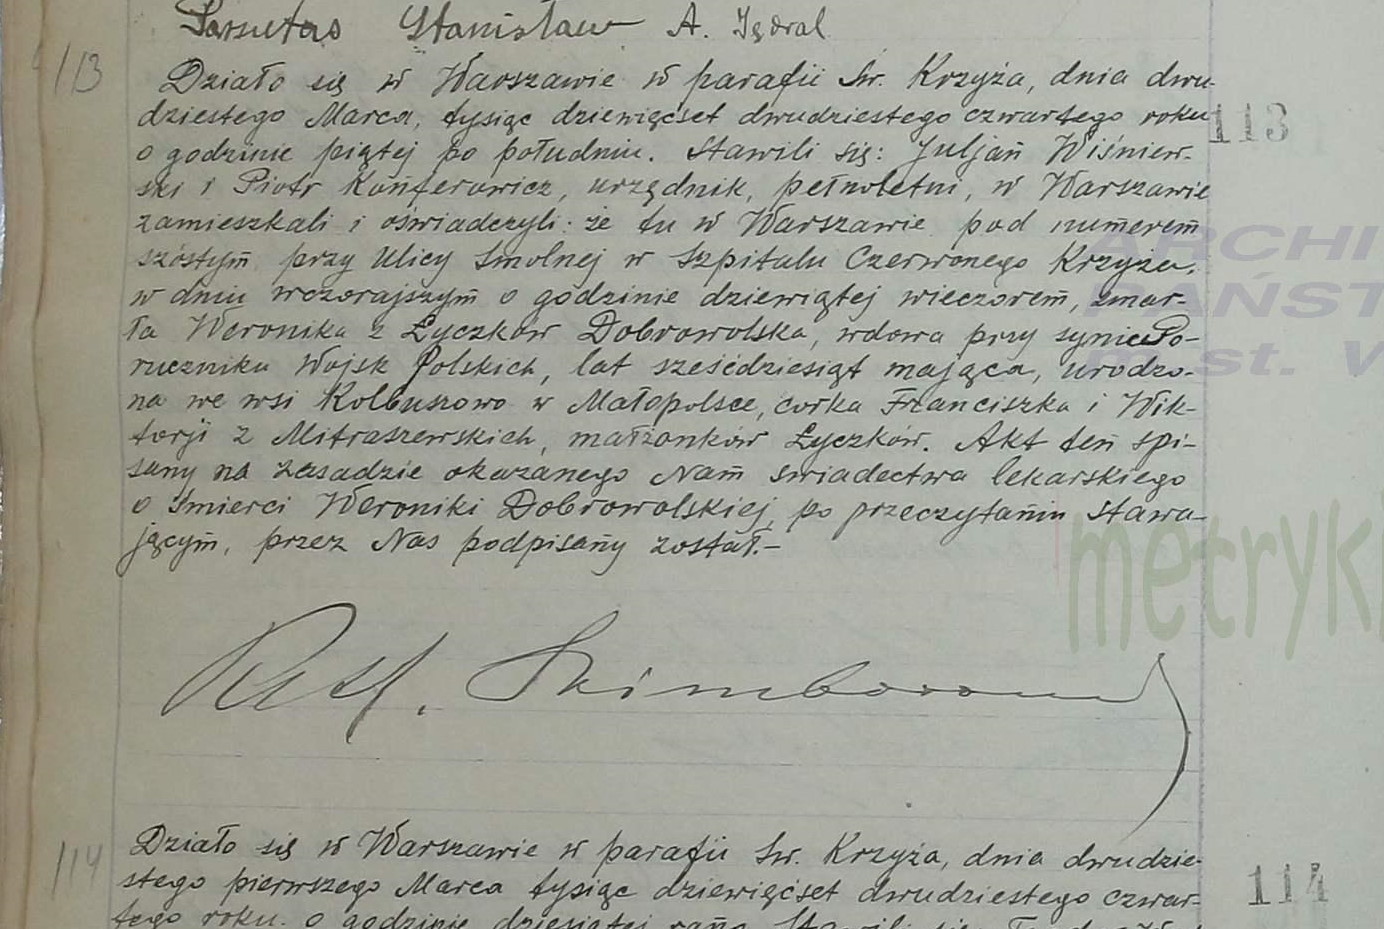 Stanisław A. Jędral
113
Działo się w Warszawie w parafii Św. Krzyża, dnia dwu-
dziestego Marca, tysiąc dziewięćset dwudziestego czwartego roku
113
o godzinie piątej po południu. Stawili się: Juljan Wiśniew-
ski i Piotr Kunferowicz, urzędnik, pełnoletni, w Warszawie
zamieszkali i oświadczyli: że tu w Warszawie pod numerem
szóstym przy Ulicy Smolnej w Szpitalu Czerwonego Krzyża,
w dniu wczorajszym o godzinie dziewiątej wieczorem, zmar-
ła Weronika z Łyczków Dobrowolska, wdowa przy synie Po-
ruczniku Wojsk Polskich, lat sześćdziesiąt mająca, urodzo-
na we wsi Kolbuszowo w Małopolsce, córka Franciszka i Wik-
torji z Mitraszewskich, małżonków Łyczków. Akt ten spi-
sany na zasadzie okazanego Nam świadectwa lekarskiego
o śmierci Weroniki Dobrowolskiej, po przeczytaniu stawa-
jącym, przez Nas podpisany został.-
ARCHI
PAŃST
m.st. W
metryki
114
Działo się w Warszawie w parafii Św. Krzyża, dnia dwudzie-
stego pierwszego Marca tysiąc dziewięćset dwudziestego czwar-
114
tego roku o godzinie dziesiątej rano Stawili się: